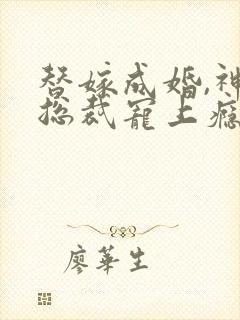 替嫁成婚,神
总裁宠上瘾
廖华生